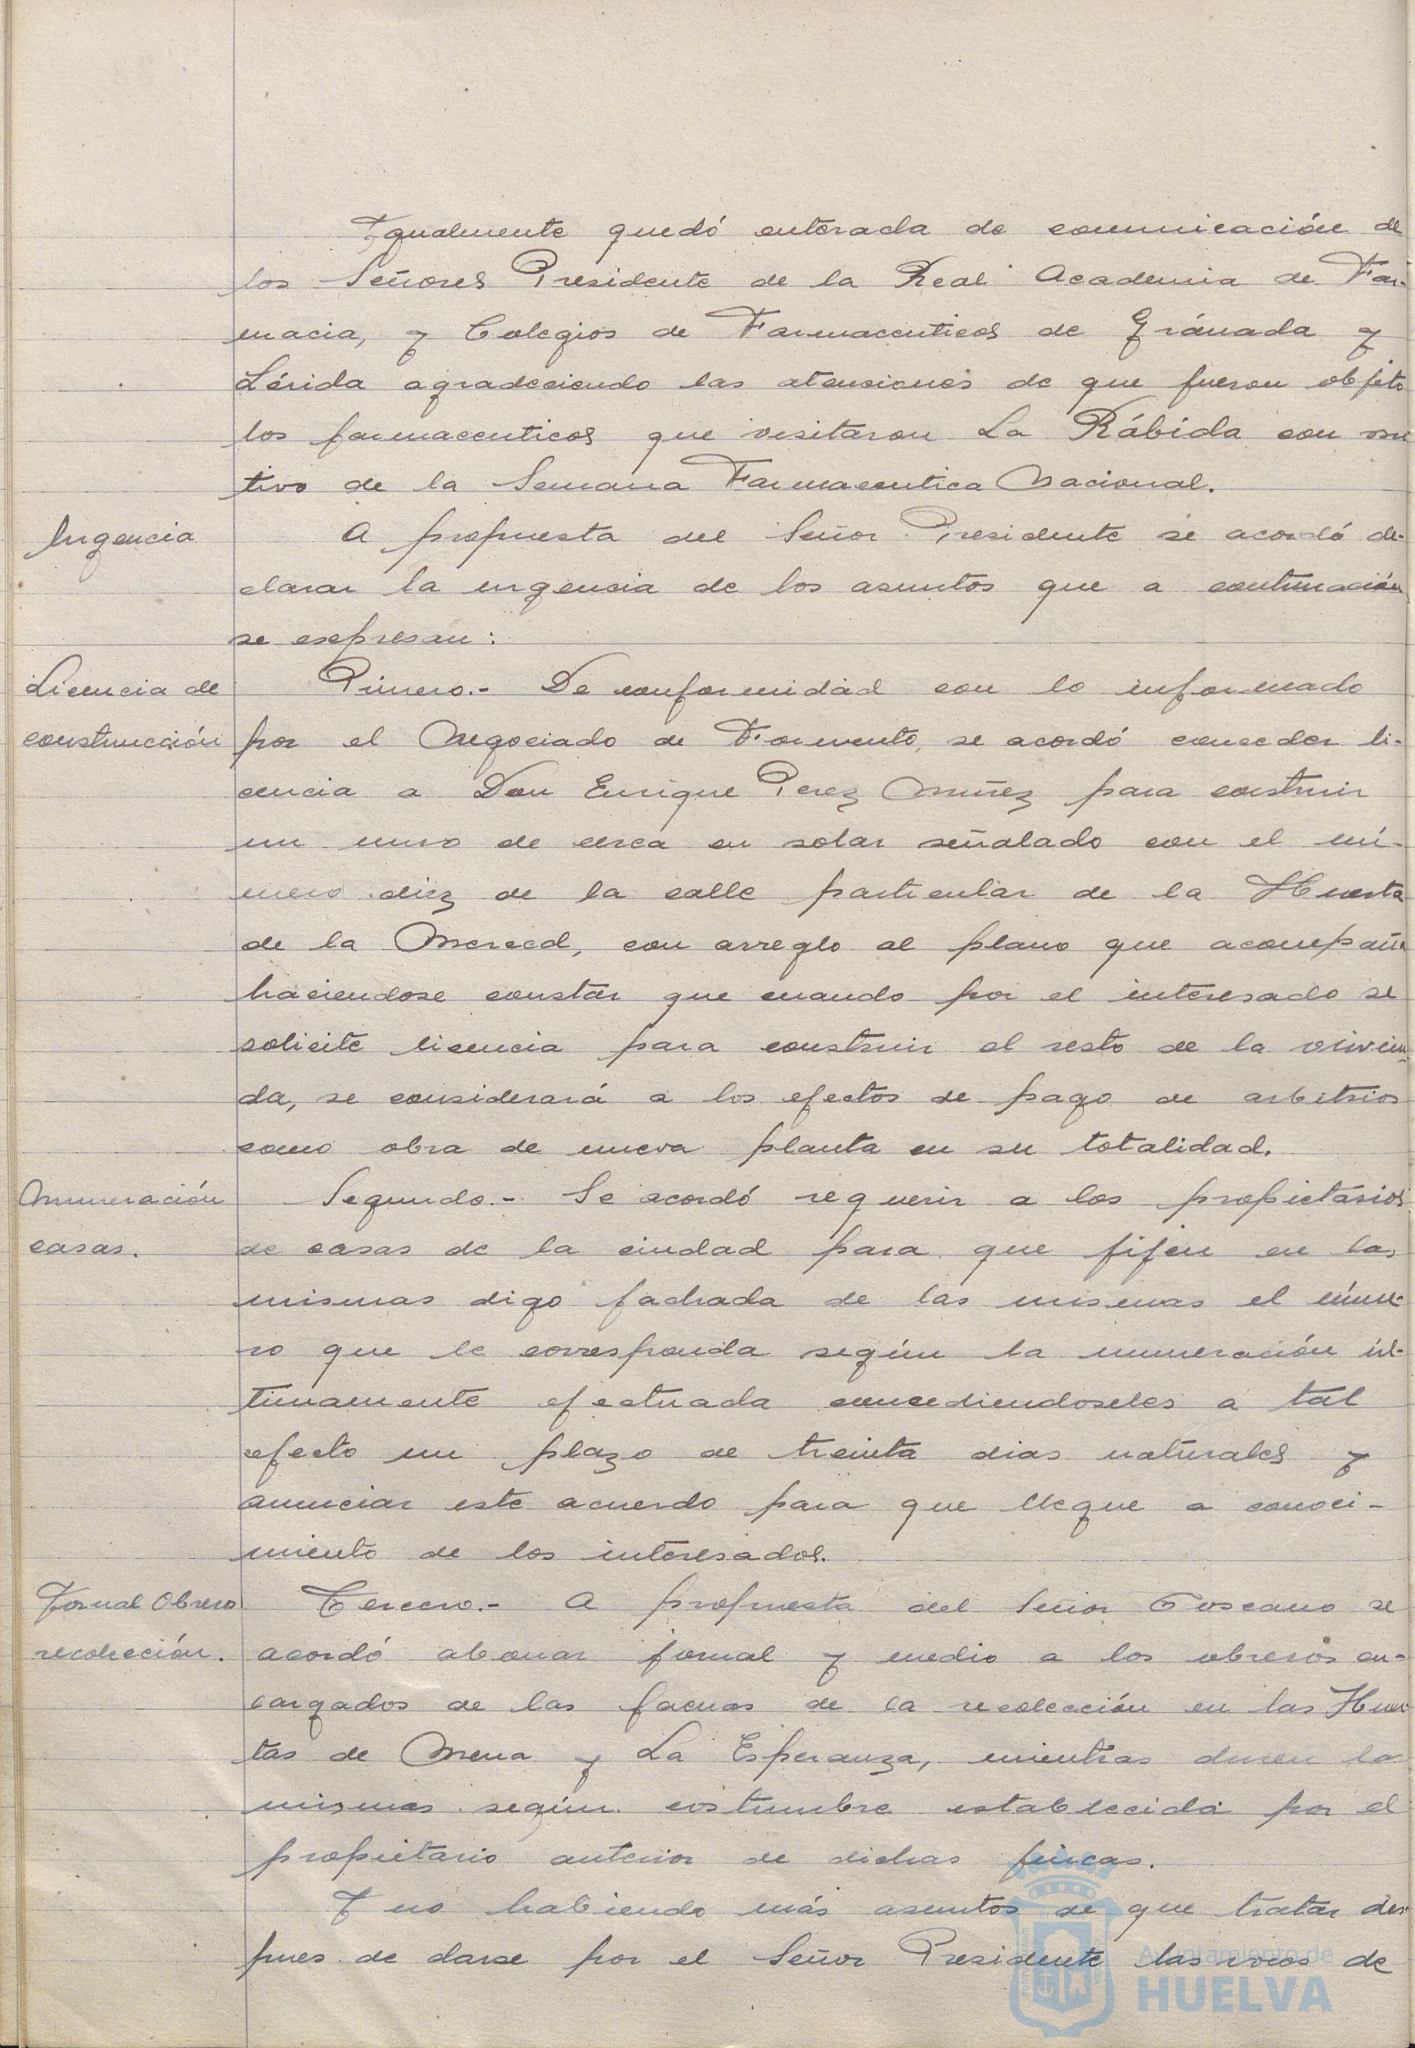 Igualmente quedó enterada de comunicación de
los Señores Presidente de la Real Academia de Far-
macia, y Colegios de Farmaceuticos de Gránada y
Lérida agradeciendo las atenciones de que fueron objeto
los farmaceuticos que visitaron La Rábida con mo
tivo de la Semana Farmaceutica Nacional.
Urgencia
A propuesta del Señor Presidente se acordó de-
clarar la urgencia de los asuntos que a continuación
se esepresan:
Licencia de
construcción
Primero.- De conformidad con lo informado
por el Negociado de Fomento, se acordó conceder li-
cencia a Don Enrique Perez Nuñez para construir
un muro de cerca en solar señalado con el nú-
mero diez de la calle particular de la Huerta
de la Merced, con arreglo al plano que acompaña
haciendose constar que cuando por el interesado se
solicite licencia para construir el resto de la vivien-
da, se considerará a los efectos de pago de arbitrios
como obra de nueva planta en su totalidad.
Numeración
casas.
Segundo.- Se acordó requerir a los propietarios
de casas de la ciudad para que fijen en las
mismas digo fachada de las mismas el núme-
ro que le corresponda según la numeración úl-
timamente efectuada concediendoseles a tal
efecto un plazo de treinta dias naturales y
anunciar este acuerdo para que llegue a conoci-
miento de los interesados.
Jornal Obrero
recolección.
Tercero.- A propuesta del Señor Toscano se
acordó abonar jornal y medio a los obreros en-
cargados de las faenas de la recolección en las Huer
tas de Mena y La Esperanza, mientras duren las
mismas según costumbre establecida por el
propietario anterior de dichas fincas.
Y no habiendo más asuntos de que tratar des
pues de darse por el Señor Presidente las voces de
Ayuntamiento de
HUELVA